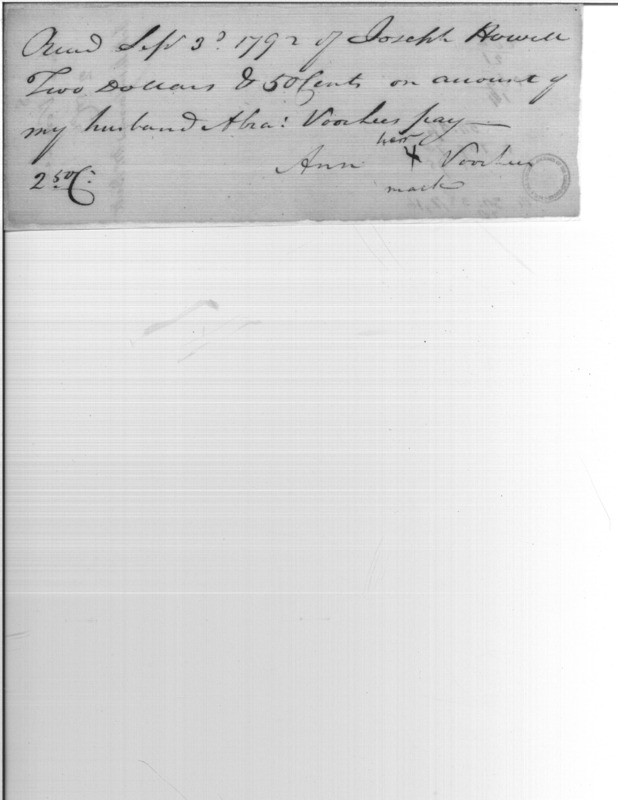 Recd Sepr 3d. 1792 of Joseph Howell
Two Dollars & 50 Cents on account of
my husband Abra: Voorhees pay
her
Ann X Voorhees
mark
2 50 C: